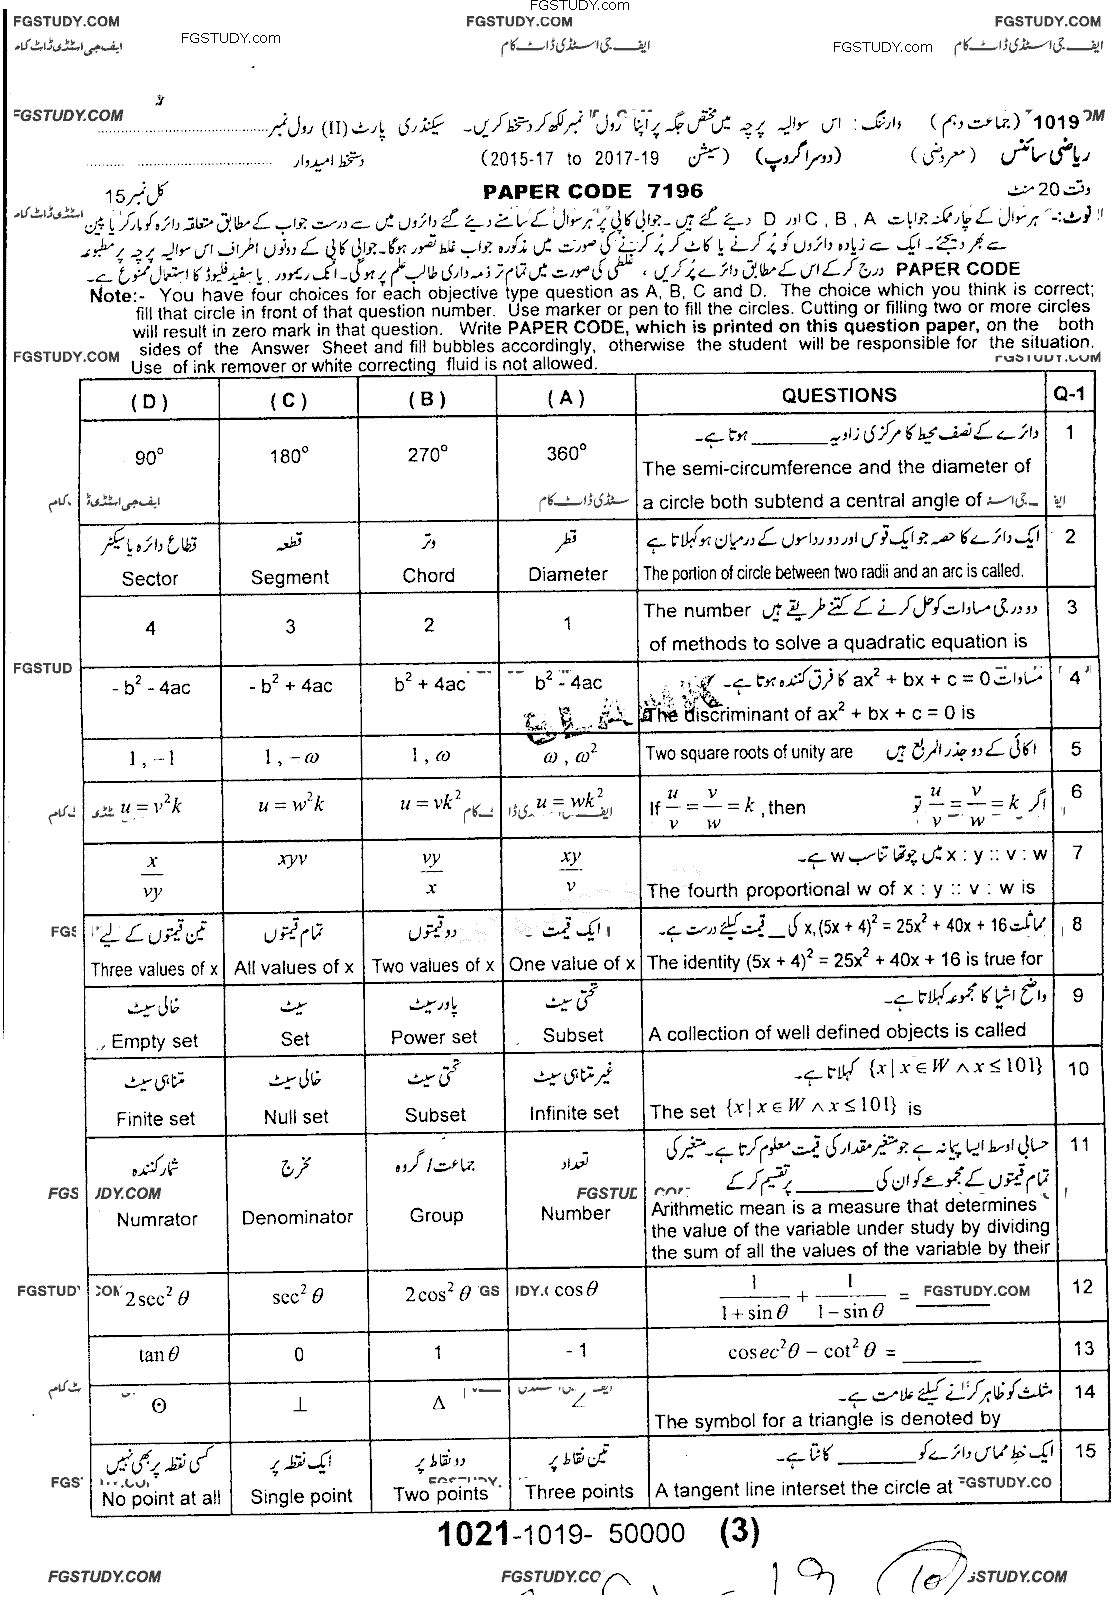 FGSTUDY.com
FGSTUDY.COM FGSTUDY.COM FGSTUDY.COM
ایف جی اسٹڈی ڈاٹ کام FGSTUDY.com ایف جی اسٹڈی ڈاٹ کام FGSTUDY.com ایف جی اسٹڈی ڈاٹ کام
FGSTUDY.COM
1019 (جماعت دہم) وارننگ: اس سوالیہ پرچہ میں مختص جگہ پر اپنا رول نمبر لکھ کر دستخط کریں۔ سیکنڈری پارٹ (II) رول نمبر
ریاضی سائنس (معروضی) (دوسرا گروپ) (سیشن 2015-17 to 2017-19) دستخط امیدوار
وقت 20 منٹ PAPER CODE 7196 کل نمبر 15
نوٹ:- ہر سوال کے چار ممکنہ جوابات A ، B ، C اور D دیئے گئے ہیں۔ جوابی کاپی پر ہر سوال کے سامنے دیئے گئے دائروں میں سے درست جواب کے مطابق متعلقہ دائرہ کو مارکر یا پین
سے بھر دیجئے۔ ایک سے زیادہ دائروں کو پُر کرنے یا کاٹ کر پُر کرنے کی صورت میں مذکورہ جواب غلط تصور ہوگا۔ جوابی کاپی کے دونوں اطراف اس سوالیہ پرچہ پر مطبوعہ
PAPER CODE درج کر کے اس کے مطابق دائرے پُر کریں، غلطی کی صورت میں تمام تر ذمہ داری طالب علم پر ہوگی۔ انک ریموور یا سفید فلیوڈ کا استعمال ممنوع ہے۔
Note:- You have four choices for each objective type question as A, B, C and D. The choice which you think is correct;
fill that circle in front of that question number. Use marker or pen to fill the circles. Cutting or filling two or more circles
will result in zero mark in that question. Write PAPER CODE, which is printed on this question paper, on the both
sides of the Answer Sheet and fill bubbles accordingly, otherwise the student will be responsible for the situation.
FGSTUDY.COM FGSTUDY.COM
Use of ink remover or white correcting fluid is not allowed.
(D) (C) (B) (A) QUESTIONS Q-1
دائرے کے نصف محیط کا مرکزی زاویہ ________ ہوتا ہے۔ 1
90° 180° 270° 360° The semi-circumference and the diameter of
a circle both subtend a central angle of
ایک دائرے کا حصہ جو ایک قوس اور دو رداسوں کے درمیان ہو کہلاتا ہے 2
قطاع دائرہ یا سیکٹر قطعہ وتر قطر
Sector Segment Chord Diameter The portion of circle between two radii and an arc is called.
The number دو درجی مساوات کو حل کرنے کے کتنے طریقے ہیں 3
4 3 2 1 of methods to solve a quadratic equation is
مساوات ax² + bx + c = 0 کا فرق کنندہ ہوتا ہے۔ 4
FGSTUD
- b² - 4ac - b² + 4ac b² + 4ac b² - 4ac The discriminant of ax² + bx + c = 0 is
BLANK
1, −1 1, −ω 1, ω ω, ω² Two square roots of unity are اکائی کے دو جذر المربع ہیں 5
u = v²k u = w²k u = vk² u = wk² If u/v = v/w = k, then اگر u/v = v/w = k تو 6
x : y :: v : w میں چوتھا تناسب w ہے۔ 7
x/vy xyv vy/x xy/v The fourth proportional w of x : y :: v : w is
مماثلت (5x + 4)² = 25x² + 40x + 16, x کی __ قیمت کیلئے درست ہے۔ 8
FGS تین قیمتوں کے لیے تمام قیمتوں دو قیمتوں ایک قیمت
Three values of x All values of x Two values of x One value of x The identity (5x + 4)² = 25x² + 40x + 16 is true for
واضح اشیا کا مجموعہ کہلاتا ہے۔ 9
خالی سیٹ سیٹ پاور سیٹ تحتی سیٹ
Empty set Set Power set Subset A collection of well defined objects is called
{x | x ∈ W ∧ x ≤ 101} کہلاتا ہے۔ 10
متناہی سیٹ خالی سیٹ تحتی سیٹ غیر متناہی سیٹ
Finite set Null set Subset Infinite set The set {x | x ∈ W ∧ x ≤ 101} is
حسابی اوسط ایسا پیمانہ ہے جو متغیر مقدار کی قیمت معلوم کرتا ہے۔ متغیر کی 11
تمام قیمتوں کے مجموعے کو ان کی ________ پر تقسیم کر کے
شمار کنندہ مخرج جماعت / گروہ تعداد
FGS JDY.COM FGSTUD
Numrator Denominator Group Number Arithmetic mean is a measure that determines
the value of the variable under study by dividing
the sum of all the values of the variable by their
2sec²θ sec²θ 2cos²θ cosθ 1/(1+sinθ) + 1/(1−sinθ) = ________ 12
FGSTUDY FGSTUDY.COM
tanθ 0 1 - 1 cosec²θ − cot²θ = ________ 13
مثلث کو ظاہر کرنے کیلئے علامت ہے۔ 14
⊙ ⊥ Δ ∠ The symbol for a triangle is denoted by
ایک خط مماس دائرے کو ________ کاٹتا ہے۔ 15
کسی نقطہ پر بھی نہیں ایک نقطہ پر دو نقاط پر تین نقاط پر
No point at all Single point Two points Three points A tangent line interset the circle at FGSTUDY.CO
1021-1019- 50000 (3)
FGSTUDY.COM FGSTUDY.CO STUDY.COM